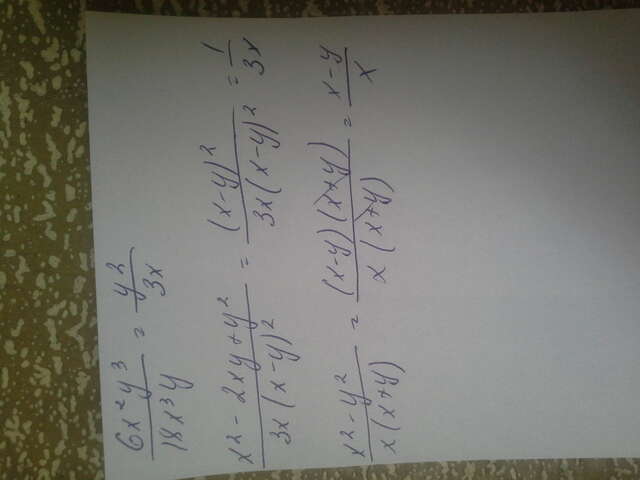 6x²y³/18x³y = y²/3x
x² - 2xy + y²/3x(x-y)² = (x-y)²/3x(x-y)² = 1/3x
x² - y²/x(x+y) = (x-y)(x+y)/x(x+y) = x-y/x